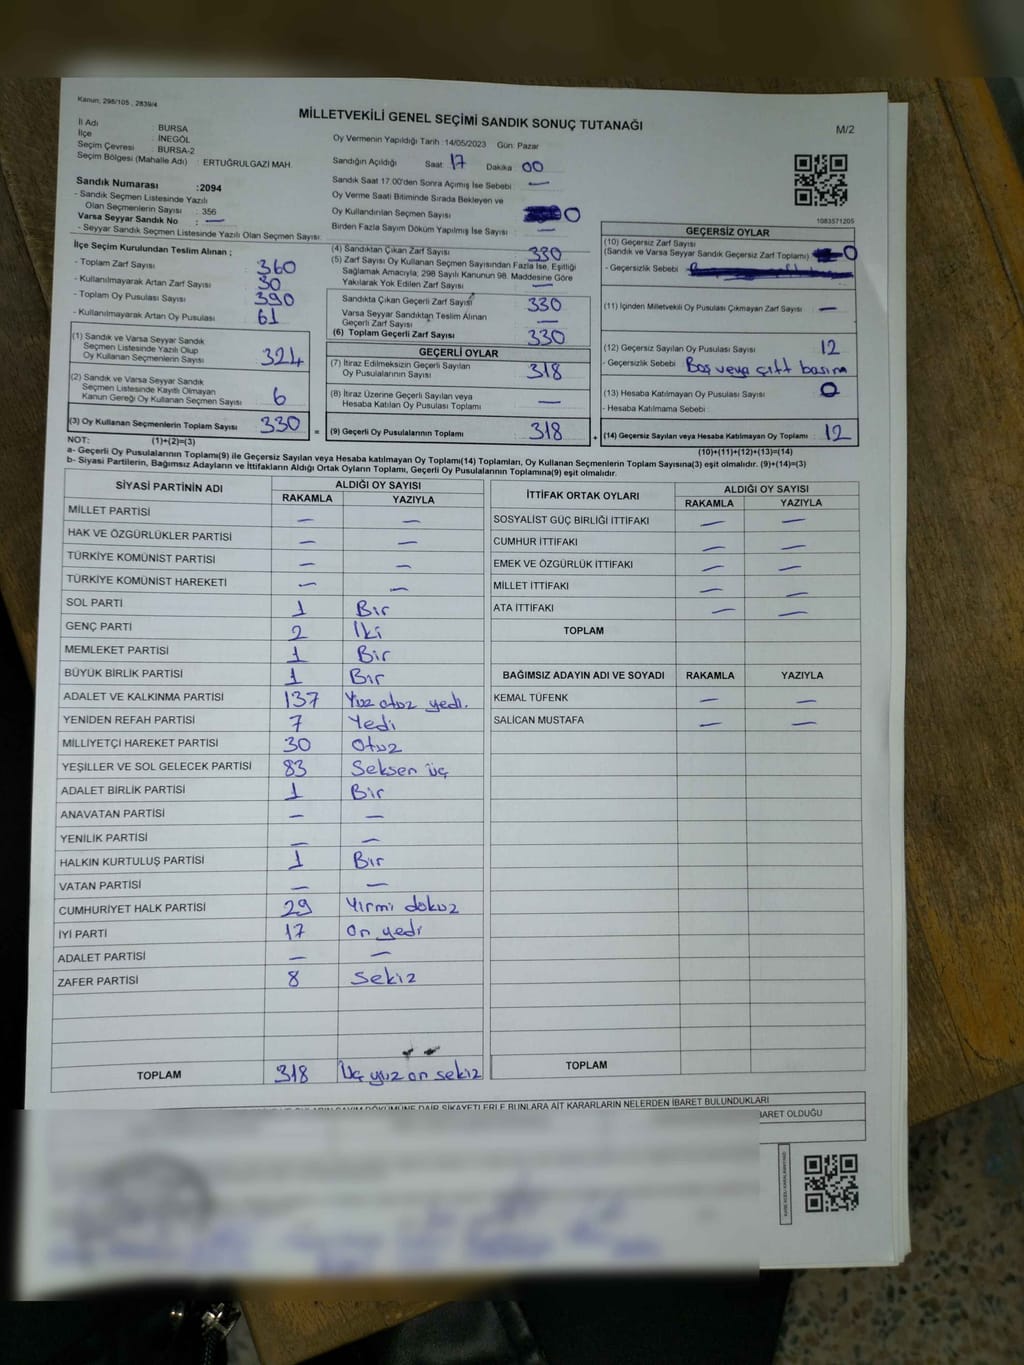 Kanun; 298/105 , 2839/4
MİLLETVEKİLİ GENEL SEÇİMİ SANDIK SONUÇ TUTANAĞI
M/2
İl Adı : BURSA
İlçe : İNEGÖL
Seçim Çevresi : BURSA-2
Seçim Bölgesi (Mahalle Adı) : ERTUĞRULGAZİ MAH.
Sandık Numarası :2094
- Sandık Seçmen Listesinde Yazılı
Olan Seçmenlerin Sayısı : 356
Varsa Seyyar Sandık No : —
- Seyyar Sandık Seçmen Listesinde Yazılı Olan Seçmen Sayısı:
Oy Vermenin Yapıldığı Tarih :14/05/2023 Gün: Pazar
Sandığın Açıldığı Saat: 17 Dakika 00
Sandık Saat 17.00'den Sonra Açılmış İse Sebebi : —
Oy Verme Saati Bitiminde Sırada Bekleyen ve
Oy Kullandırılan Seçmen Sayısı : 0
Birden Fazla Sayım Döküm Yapılmış İse Sayısı : —
1083571205
İlçe Seçim Kurulundan Teslim Alınan ;
- Toplam Zarf Sayısı : 360
- Kullanılmayarak Artan Zarf Sayısı : 30
- Toplam Oy Pusulası Sayısı : 390
- Kullanılmayarak Artan Oy Pusulası : 61
(1) Sandık ve Varsa Seyyar Sandık
Seçmen Listesinde Yazılı Olup
Oy Kullanan Seçmenlerin Sayısı : 324
(2) Sandık ve Varsa Seyyar Sandık
Seçmen Listesinde Kayıtlı Olmayan
Kanun Gereği Oy Kullanan Seçmen Sayısı : 6
(3) Oy Kullanan Seçmenlerin Toplam Sayısı : 330
(4) Sandıktan Çıkan Zarf Sayısı : 330
(5) Zarf Sayısı Oy Kullanan Seçmen Sayısından Fazla İse, Eşitliği
Sağlamak Amacıyla, 298 Sayılı Kanunun 98. Maddesine Göre
Yakılarak Yok Edilen Zarf Sayısı : —
Sandıkta Çıkan Geçerli Zarf Sayısı : 330
Varsa Seyyar Sandıktan Teslim Alınan
Geçerli Zarf Sayısı : —
(6) Toplam Geçerli Zarf Sayısı : 330
GEÇERLİ OYLAR
(7) İtiraz Edilmeksizin Geçerli Sayılan
Oy Pusulalarının Sayısı : 318
(8) İtiraz Üzerine Geçerli Sayılan veya
Hesaba Katılan Oy Pusulası Toplamı : —
= (9) Geçerli Oy Pusulalarının Toplamı : 318
GEÇERSİZ OYLAR
(10) Geçersiz Zarf Sayısı
(Sandık ve Varsa Seyyar Sandık Geçersiz Zarf Toplamı) : 0
- Geçersizlik Sebebi :
(11) İçinden Milletvekili Oy Pusulası Çıkmayan Zarf Sayısı : —
(12) Geçersiz Sayılan Oy Pusulası Sayısı : 12
- Geçersizlik Sebebi : Boş veya çift basım
(13) Hesaba Katılmayan Oy Pusulası Sayısı : 0
- Hesaba Katılmama Sebebi :
+ (14) Geçersiz Sayılan veya Hesaba Katılmayan Oy Toplamı : 12
NOT: (1)+(2)=(3)
(10)+(11)+(12)+(13)=(14)
a- Geçerli Oy Pusulalarının Toplamı(9) ile Geçersiz Sayılan veya Hesaba katılmayan Oy Toplamı(14) Toplamları, Oy Kullanan Seçmenlerin Toplam Sayısına(3) eşit olmalıdır. (9)+(14)=(3)
b- Siyasi Partilerin, Bağımsız Adayların ve İttifakların Aldığı Ortak Oyların Toplamı, Geçerli Oy Pusulalarının Toplamına(9) eşit olmalıdır.
SİYASİ PARTİNİN ADI ALDIĞI OY SAYISI
RAKAMLA YAZIYLA
MİLLET PARTİSİ — —
HAK VE ÖZGÜRLÜKLER PARTİSİ — —
TÜRKİYE KOMÜNİST PARTİSİ — —
TÜRKİYE KOMÜNİST HAREKETİ — —
SOL PARTİ 1 Bir
GENÇ PARTİ 2 İki
MEMLEKET PARTİSİ 1 Bir
BÜYÜK BİRLİK PARTİSİ 1 Bir
ADALET VE KALKINMA PARTİSİ 137 Yüz otuz yedi.
YENİDEN REFAH PARTİSİ 7 Yedi
MİLLİYETÇİ HAREKET PARTİSİ 30 Otuz
YEŞİLLER VE SOL GELECEK PARTİSİ 83 Seksen üç
ADALET BİRLİK PARTİSİ 1 Bir
ANAVATAN PARTİSİ — —
YENİLİK PARTİSİ — —
HALKIN KURTULUŞ PARTİSİ 1 Bir
VATAN PARTİSİ — —
CUMHURİYET HALK PARTİSİ 29 Yirmi dokuz
İYİ PARTİ 17 On yedi
ADALET PARTİSİ — —
ZAFER PARTİSİ 8 Sekiz
TOPLAM 318 Üç yüz on sekiz
İTTİFAK ORTAK OYLARI ALDIĞI OY SAYISI
RAKAMLA YAZIYLA
SOSYALİST GÜÇ BİRLİĞİ İTTİFAKI — —
CUMHUR İTTİFAKI — —
EMEK VE ÖZGÜRLÜK İTTİFAKI — —
MİLLET İTTİFAKI — —
ATA İTTİFAKI — —
TOPLAM
BAĞIMSIZ ADAYIN ADI VE SOYADI RAKAMLA YAZIYLA
KEMAL TÜFENK — —
SALİCAN MUSTAFA — —
TOPLAM
DÖKÜMÜNE DAİR ŞİKAYETLERLE BUNLARA AİT KARARLARIN NELERDEN İBARET BULUNDUKLARI
İBARET OLDUĞU